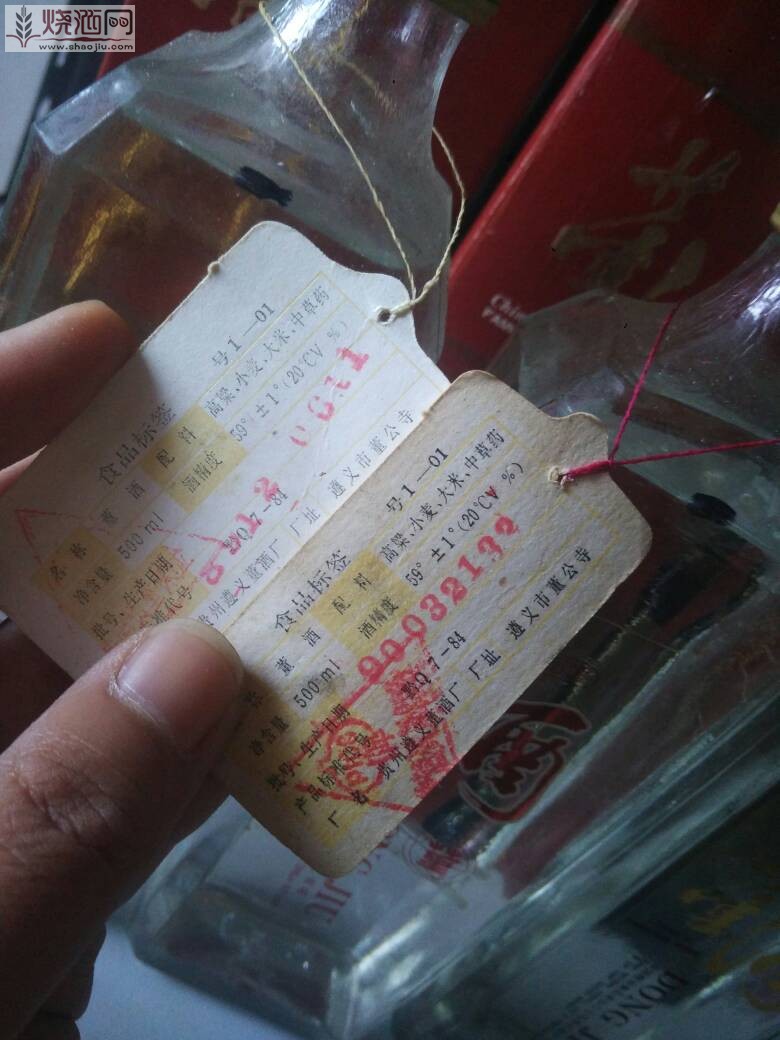 烧酒网
www.shaojiu.com
食品标签 号1—01
名称 董酒 配料 高粱、小麦、大米、中草药
净含量 500ml 酒精度 59°±1°(20℃V %)
批号、生产日期
黔Q7-84
贵州遵义董酒厂 厂址 遵义市董公寺
食品标签 号1—01
董酒 配料 高粱、小麦、大米、中草药
净含量 500ml 酒精度 59°±1°(20℃V %)
批号、生产日期 90032132
产品标准代号 黔Q7-84
厂名 贵州遵义董酒厂 厂址 遵义市董公寺
DONG JIU